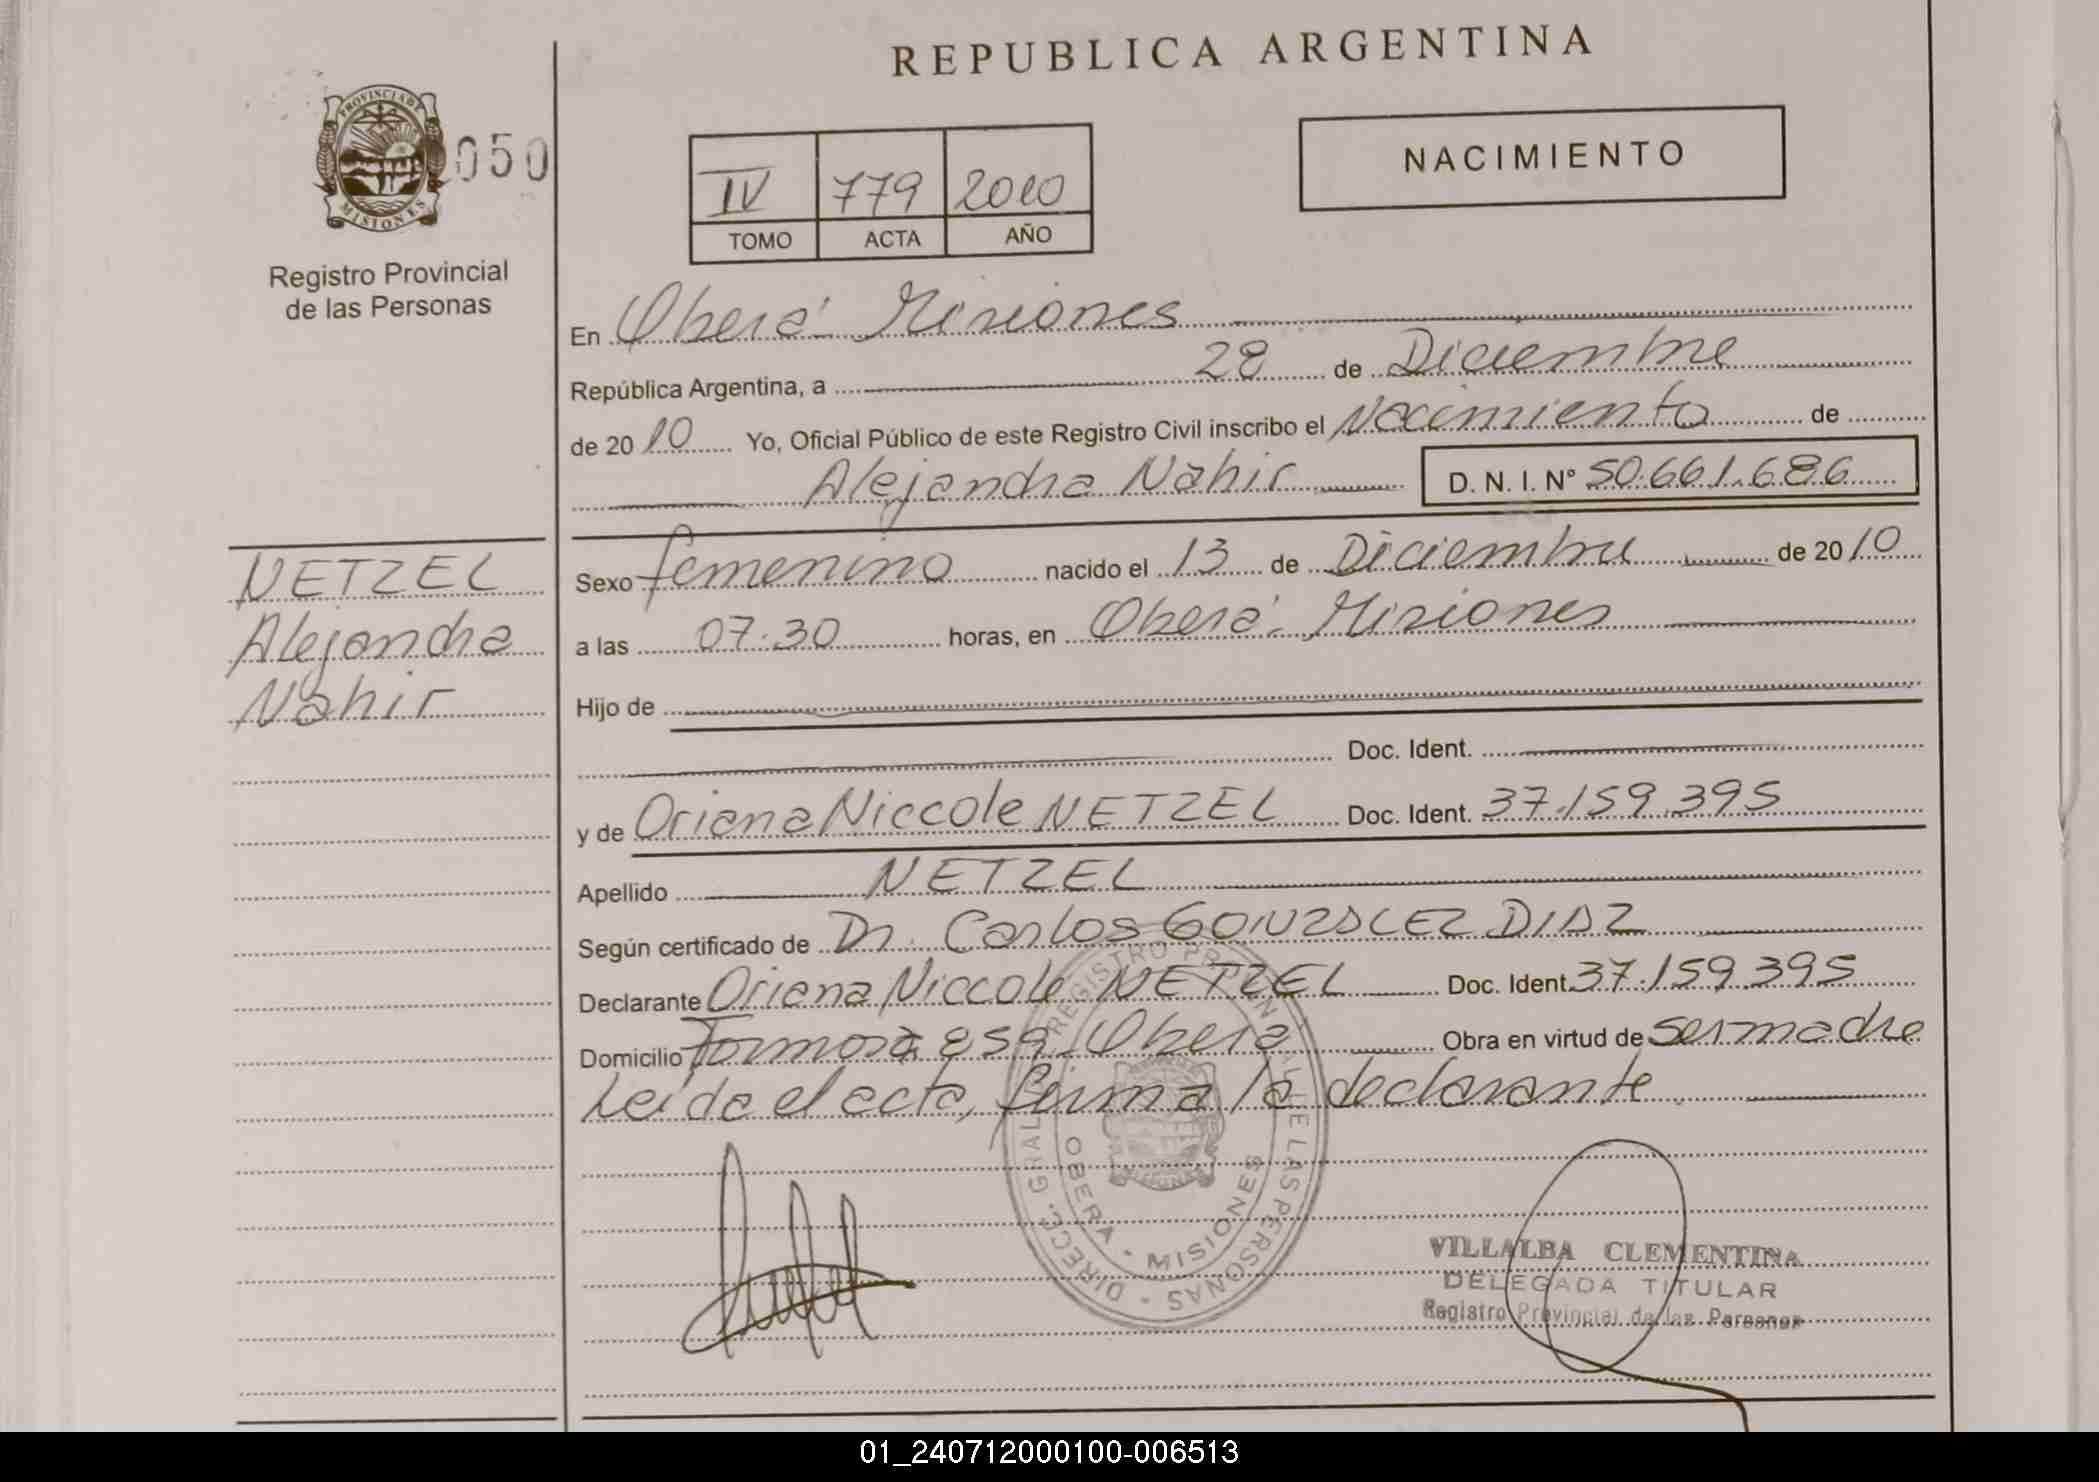 REPUBLICA ARGENTINA
PROVINCIA DE
MISIONES
050
Registro Provincial
de las Personas
IV 779 2010
TOMO ACTA AÑO
NACIMIENTO
En Oberá Misiones
República Argentina, a 28 de Diciembre
de 2010 Yo, Oficial Público de este Registro Civil inscribo el Nacimiento de
Alejandra Nahir D. N. I. Nº 50.661.686
NETZEL
Alejandra
Nahir
Sexo femenino nacido el 13 de Diciembre de 2010
a las 07.30 horas, en Oberá. Misiones
Hijo de
Doc. Ident.
y de Oriana Niccole NETZEL Doc. Ident. 37.159.395
Apellido NETZEL
Según certificado de Dr. Carlos GONZALEZ DIAZ
Declarante Oriana Niccole NETZEL Doc. Ident. 37.159.395
Domicilio Formosa 859 Oberá Obra en virtud de ser madre
Leída el acta, firma la declarante
DIRECC. GRAL. REGISTRO PROVINCIAL DE LAS PERSONAS
OBERA - MISIONES
VILLALBA CLEMENTINA
DELEGADA TITULAR
Registro Provincial de las Personas
01_240712000100-006513